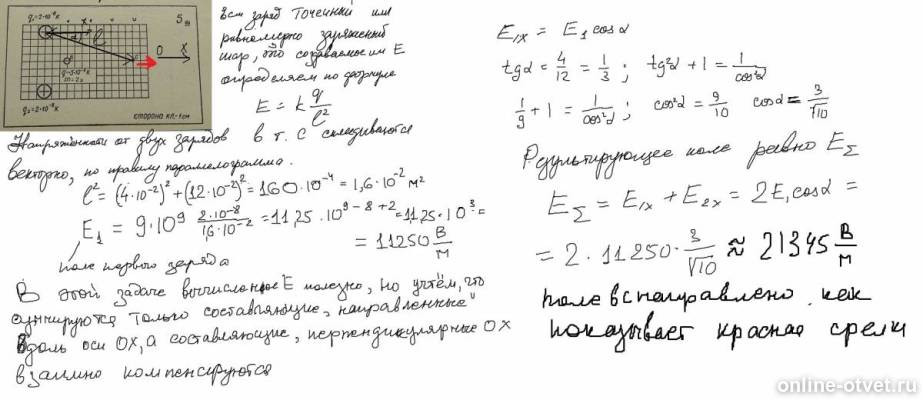 q₁=2·10⁻⁸К
5
l
O
x
q₂=2·10⁻⁸К
сторона кл.-1см
заряд точечный или
равномерно заряженный
шар, то создаваемое им E
определяем по формуле
E = k q/l²
Напряжённости от двух зарядов в т. C складываются
векторно, по правилу параллелограмма.
l² = (4·10⁻²)² + (12·10⁻²)² = 160·10⁻⁴ = 1,6·10⁻² м²
E₁ = 9·10⁹ 2·10⁻⁸/1,6·10⁻² = 11,25·10⁹⁻⁸⁺² = 11,25·10³ =
= 11250 В/м
поле первого заряда
В этой задаче вычисленное E полезно, но учтём, что
суммируются только составляющие, направленные
вдоль оси OX, а составляющие, перпендикулярные OX
взаимно компенсируются
E₁ₓ = E₁ cosα
tgα = 4/12 = 1/3 ; tg²α + 1 = 1/cos²α
1/9 + 1 = 1/cos²α ; cos²α = 9/10 cosα = 3/√10
Результирующее поле равно E_Σ
E_Σ = E₁ₓ + E₂ₓ = 2E₁cosα =
= 2 · 11250 · 3/√10 ≈ 21345 В/м
поле направлено как
показывает красная стрелк
online-otvet.ru